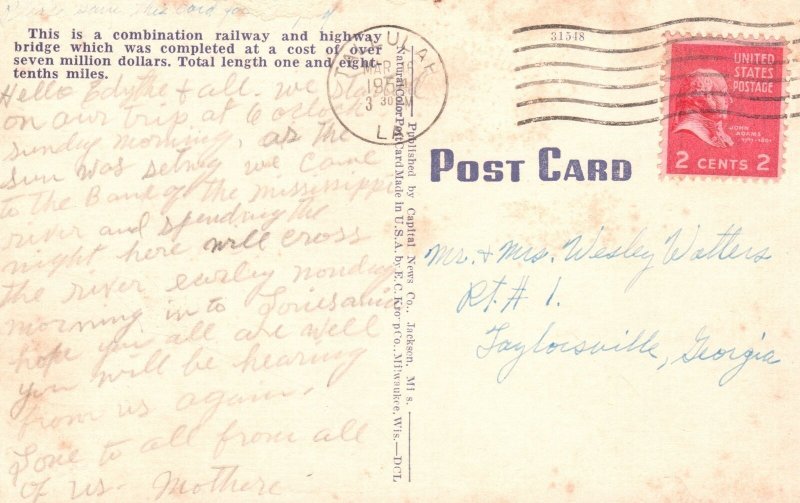 save this card
This is a combination railway and highway
bridge which was completed at a cost of over
seven million dollars. Total length one and eight-
tenths miles.
Hello all. we
on our trip at 6 o'clock
sunday morning, as the
sun was seting we Came
to the Bank of the Mississippi
river and spending the
night here will cross
the river earley monday
morning in to
hope you all are well
you will be hearing
from us again.
Love to all from all
of us. Mother
Published by Capital News Co., Jackson, Miss.
Natural Color Post Card Made in U.S.A. by E. C. Kropp Co., Milwaukee, Wis.—DCL
MAR
3 30 PM
LA
31548
UNITED
STATES
POSTAGE
JOHN
ADAMS
2 CENTS 2
POST CARD
Mr. & Mrs. Wesley Watters
Rt. # 1.
Taylorsville, Georgia